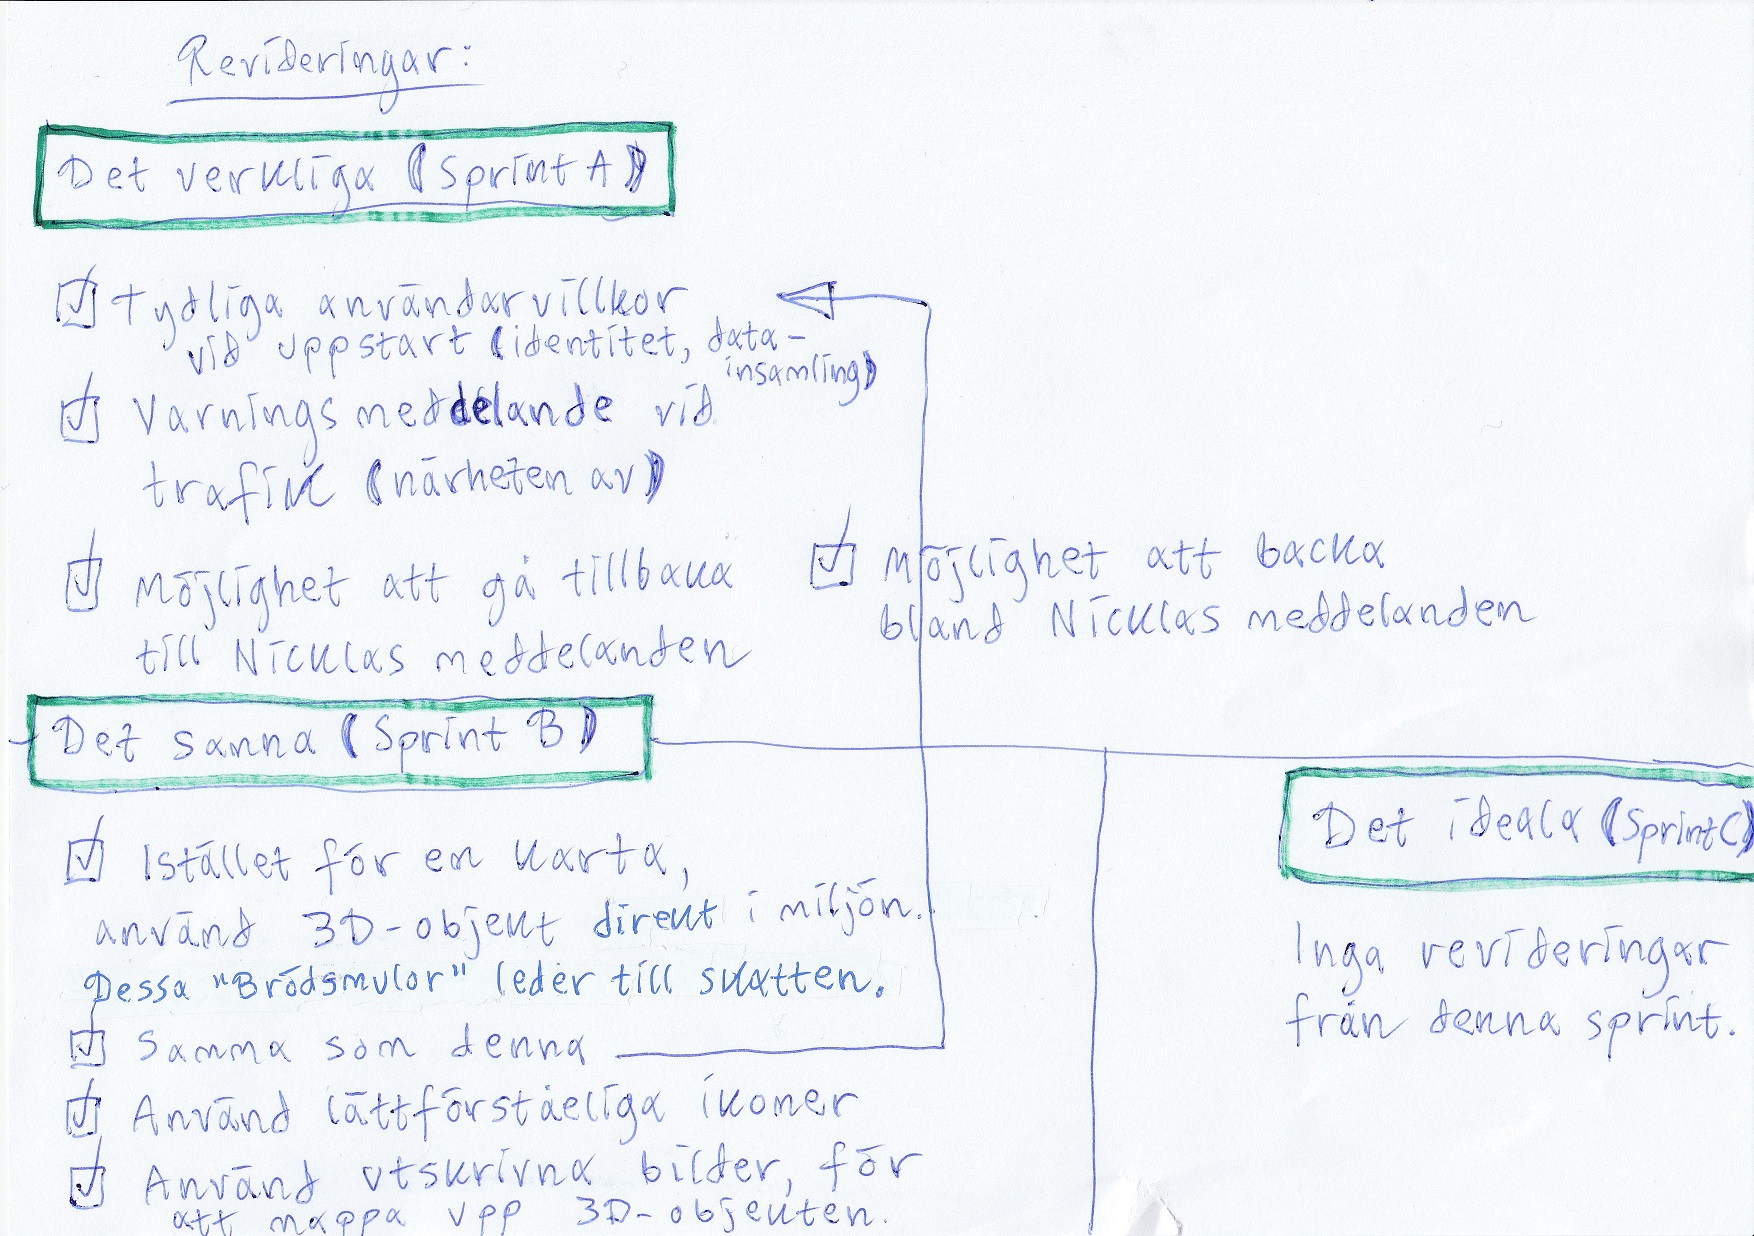 Revideringar:
Det verkliga (Sprint A)
Tydliga användarvillkor
vid uppstart (identitet, data-
insamling)
Varningsmeddelande vid
trafik (närheten av)
Möjlighet att gå tillbaka
till Nicklas meddelanden
Möjlighet att backa
bland Nicklas meddelanden
Det sanna (Sprint B)
Istället för en karta,
använd 3D-objekt direkt i miljön.
Dessa "Brödsmulor" leder till skatten.
Samma som denna
Använd lättförståeliga ikoner
Använd utskrivna bilder, för
att mappa upp 3D-objekten.
Det ideala (Sprint C)
Inga revideringar
från denna sprint.